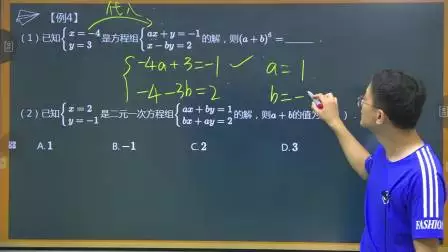 【例4】
代入
(1) 已知{x=-4 y=3 是方程组{ax+y=-1 x-by=2 的解，则(a+b)⁶=______.
{-4a+3=-1 ✓ a=1
-4-3b=2 b=-
(2) 已知{x=2 y=-1 是二元一次方程组{ax+by=1 bx+ay=2 的解，则a+b的值为 ).
A.1 B.-1 C.2 D.3
FASHION